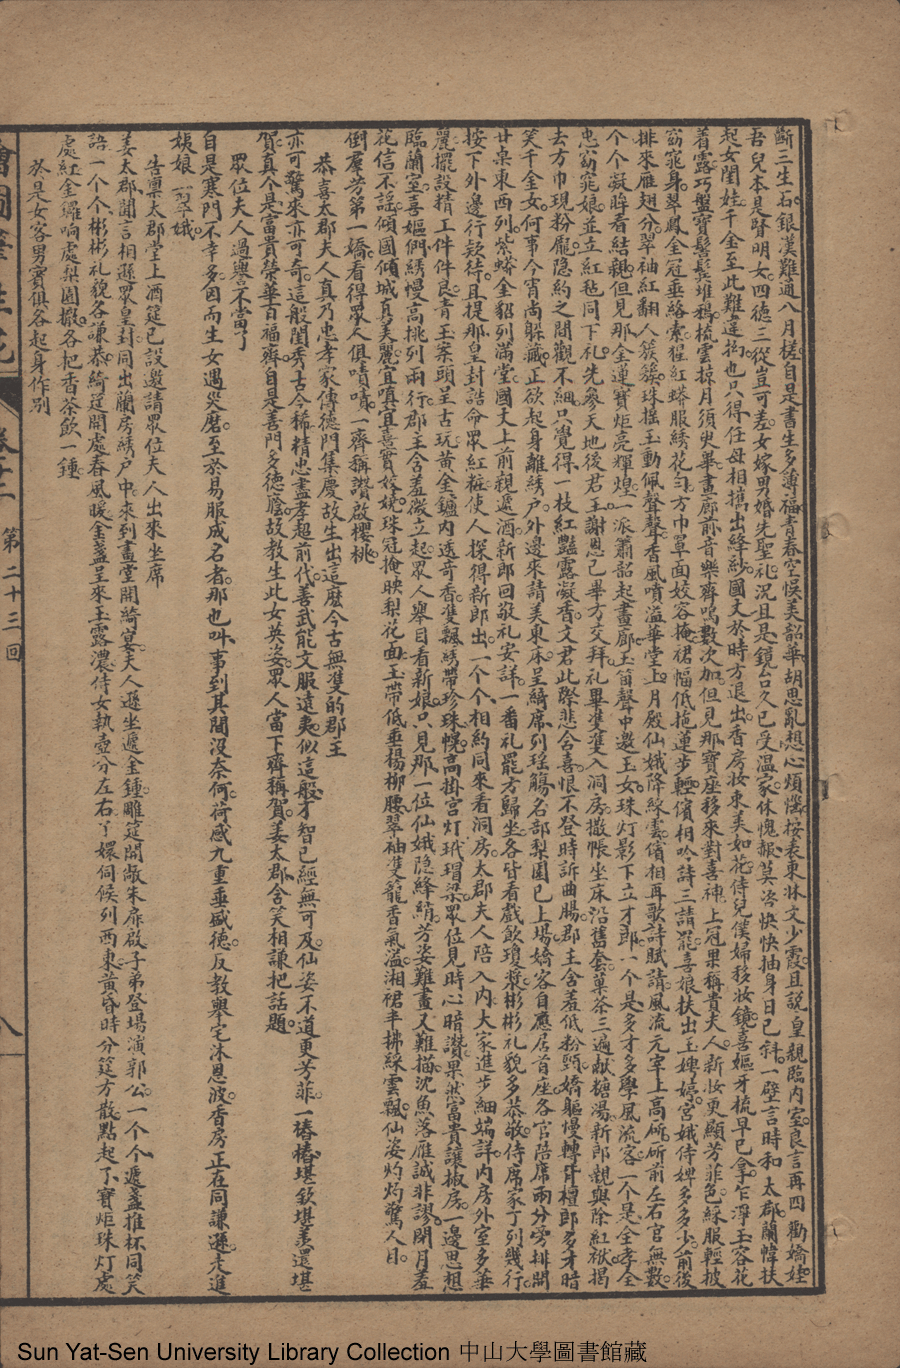 斷三生石銀漢難通八月槎自是書生多薄福青春空悮美韶華胡思亂想心煩惱按表東牀文少霞且說皇親臨內室良言再四勸嬌娃
吾兒本是聲明女四德三從豈可差女嫁男婚先聖礼況且是鏡台久已受温家休愧赧莫咨怏怏抽身日已斜一壁言時和太郡蘭幃扶
起女閨娃千金至此難違拗也只得任母相擕出絳紗國丈於時方退出香房妝束美如花侍兒僕婦移妝鏡喜嫗牙梳早已拿乍淨玉容花
着露巧盤寶髻鬓堆鴉梳雲掠月須臾畢畫廊前音樂齊鳴數次加但見那寶座移來對喜神上冠果稱貴夫人新妝更顯芳菲色綵服輕披
窈窕身翠鳳金冠垂絡索猩紅蟒服綉花勻方巾罩面姣容掩裙幅低拖蓮步輕儐相吟詩三請罷喜娘扶出玉娉婷宮娥侍婢多多少前後
排來雁翅分翠袖紅翻人簇簇珠摇玉動佩聲聲香風噴溢華堂上月殿仙娥降綵雲儐相再歌詩賦請風流元宰上高所所前左右官無數
个个凝眸看結親但見那金蓮寶炬亮輝煌一派簫韶起畫廊玉笛聲中邀玉女珠灯影下立才郎一个是多才多學風流客一个是全孝全
忠窈窕娘並立紅毡同下礼先參天地後君王謝恩已畢方交拜礼畢雙雙入洞房撒帳坐床沿舊套菓茶三遍献糖湯新郎親與除紅袱揭
去方巾現粉龐隐約之間觀不細只覺得一枝紅豔露凝香文君此際悲含喜恨不登時訴曲腸郡主含羞低粉頸嬌軀慢轉背檀郎多才暗
笑千金女何事今宵尚躲藏正欲起身離綉户外邊來請美東床呈綺席列瑶觴名部梨園已上場嬌客自應居首座各官陪席兩分旁排開
廿桌東西列紫蟒金貂列滿堂國丈上前親遞酒新郎回敬礼安詳一番礼罷方歸坐各皆看戲飲瓊漿彬彬礼貌多恭敬侍席家丁列幾行
按下外邊行欵待且提那皇封誥命眾紅粧使人探得新郎出一个个相約同來看洞房太郡夫人陪入內大家進步細端詳內房外室多華
麗擺設精工件件良青玉案頭呈古玩黃金鑪內透奇香雙飄綉帶珍珠幌高掛宫灯玳瑁梁眾位見時心暗讚果然富貴讓椒房一邊思想
臨蘭室喜嫗們綉幔高挑列兩行郡主含羞微立起眾人舉目看新娘只見那一位仙娥隐絳綃芳姿難畫又難描沈魚落雁誠非謬閉月羞
花信不謡傾國傾城真美麗宜嗔宜喜實嬌嬈珠冠掩映梨花面玉帶低垂楊柳腰翠袖雙籠香氣溢湘裙半拂綵雲飄仙姿灼灼驚人目
倒羣芳第一嬌看得眾人俱嘖嘖一齊稱讚啟櫻桃
恭喜太郡夫人真乃忠孝家傳德門集慶故生出這麽今古無雙的郡主
亦可驚來亦可奇這般閨秀古今稀精忠盡孝超前代善武能文服遠夷似這般才智已經無可及仙姿不道更芳菲一樁樁堪欽堪羡還堪
賀真个是富貴榮華百福齊自是善門多德廕故教生此女英姿眾人當下齊稱賀姜太郡含笑相謙把話題
眾位夫人過譽不當了
自是寒門不幸多因而生女遇災磨至於易服成名者那也叫事到其間沒奈何荷感九重垂盛德反教舉宅沐恩波香房正在同謙遜走進
姨娘一翠娥
告禀太郡堂上酒筵已設邀請眾位夫人出來坐席
姜太郡聞言相遜眾皇封同出蘭房綉户中來到畫堂開綺宴夫人遜坐遞金鍾雕筵開敞朱扉啟子弟登場演郭公一个个遞盞推杯同笑
語一个个彬彬礼貌各謙恭綺筵開處春風暖金盞呈來玉露濃侍女執壺分左右丫嬛伺候列西東黃昏時分筵方散點起了寶炬珠灯處
處紅金鑼响處梨園撤各把香茶飲一鍾
於是女客男賓俱各起身作別
第二十三回
八
Sun Yat-Sen University Library Collection 中山大學圖書館藏